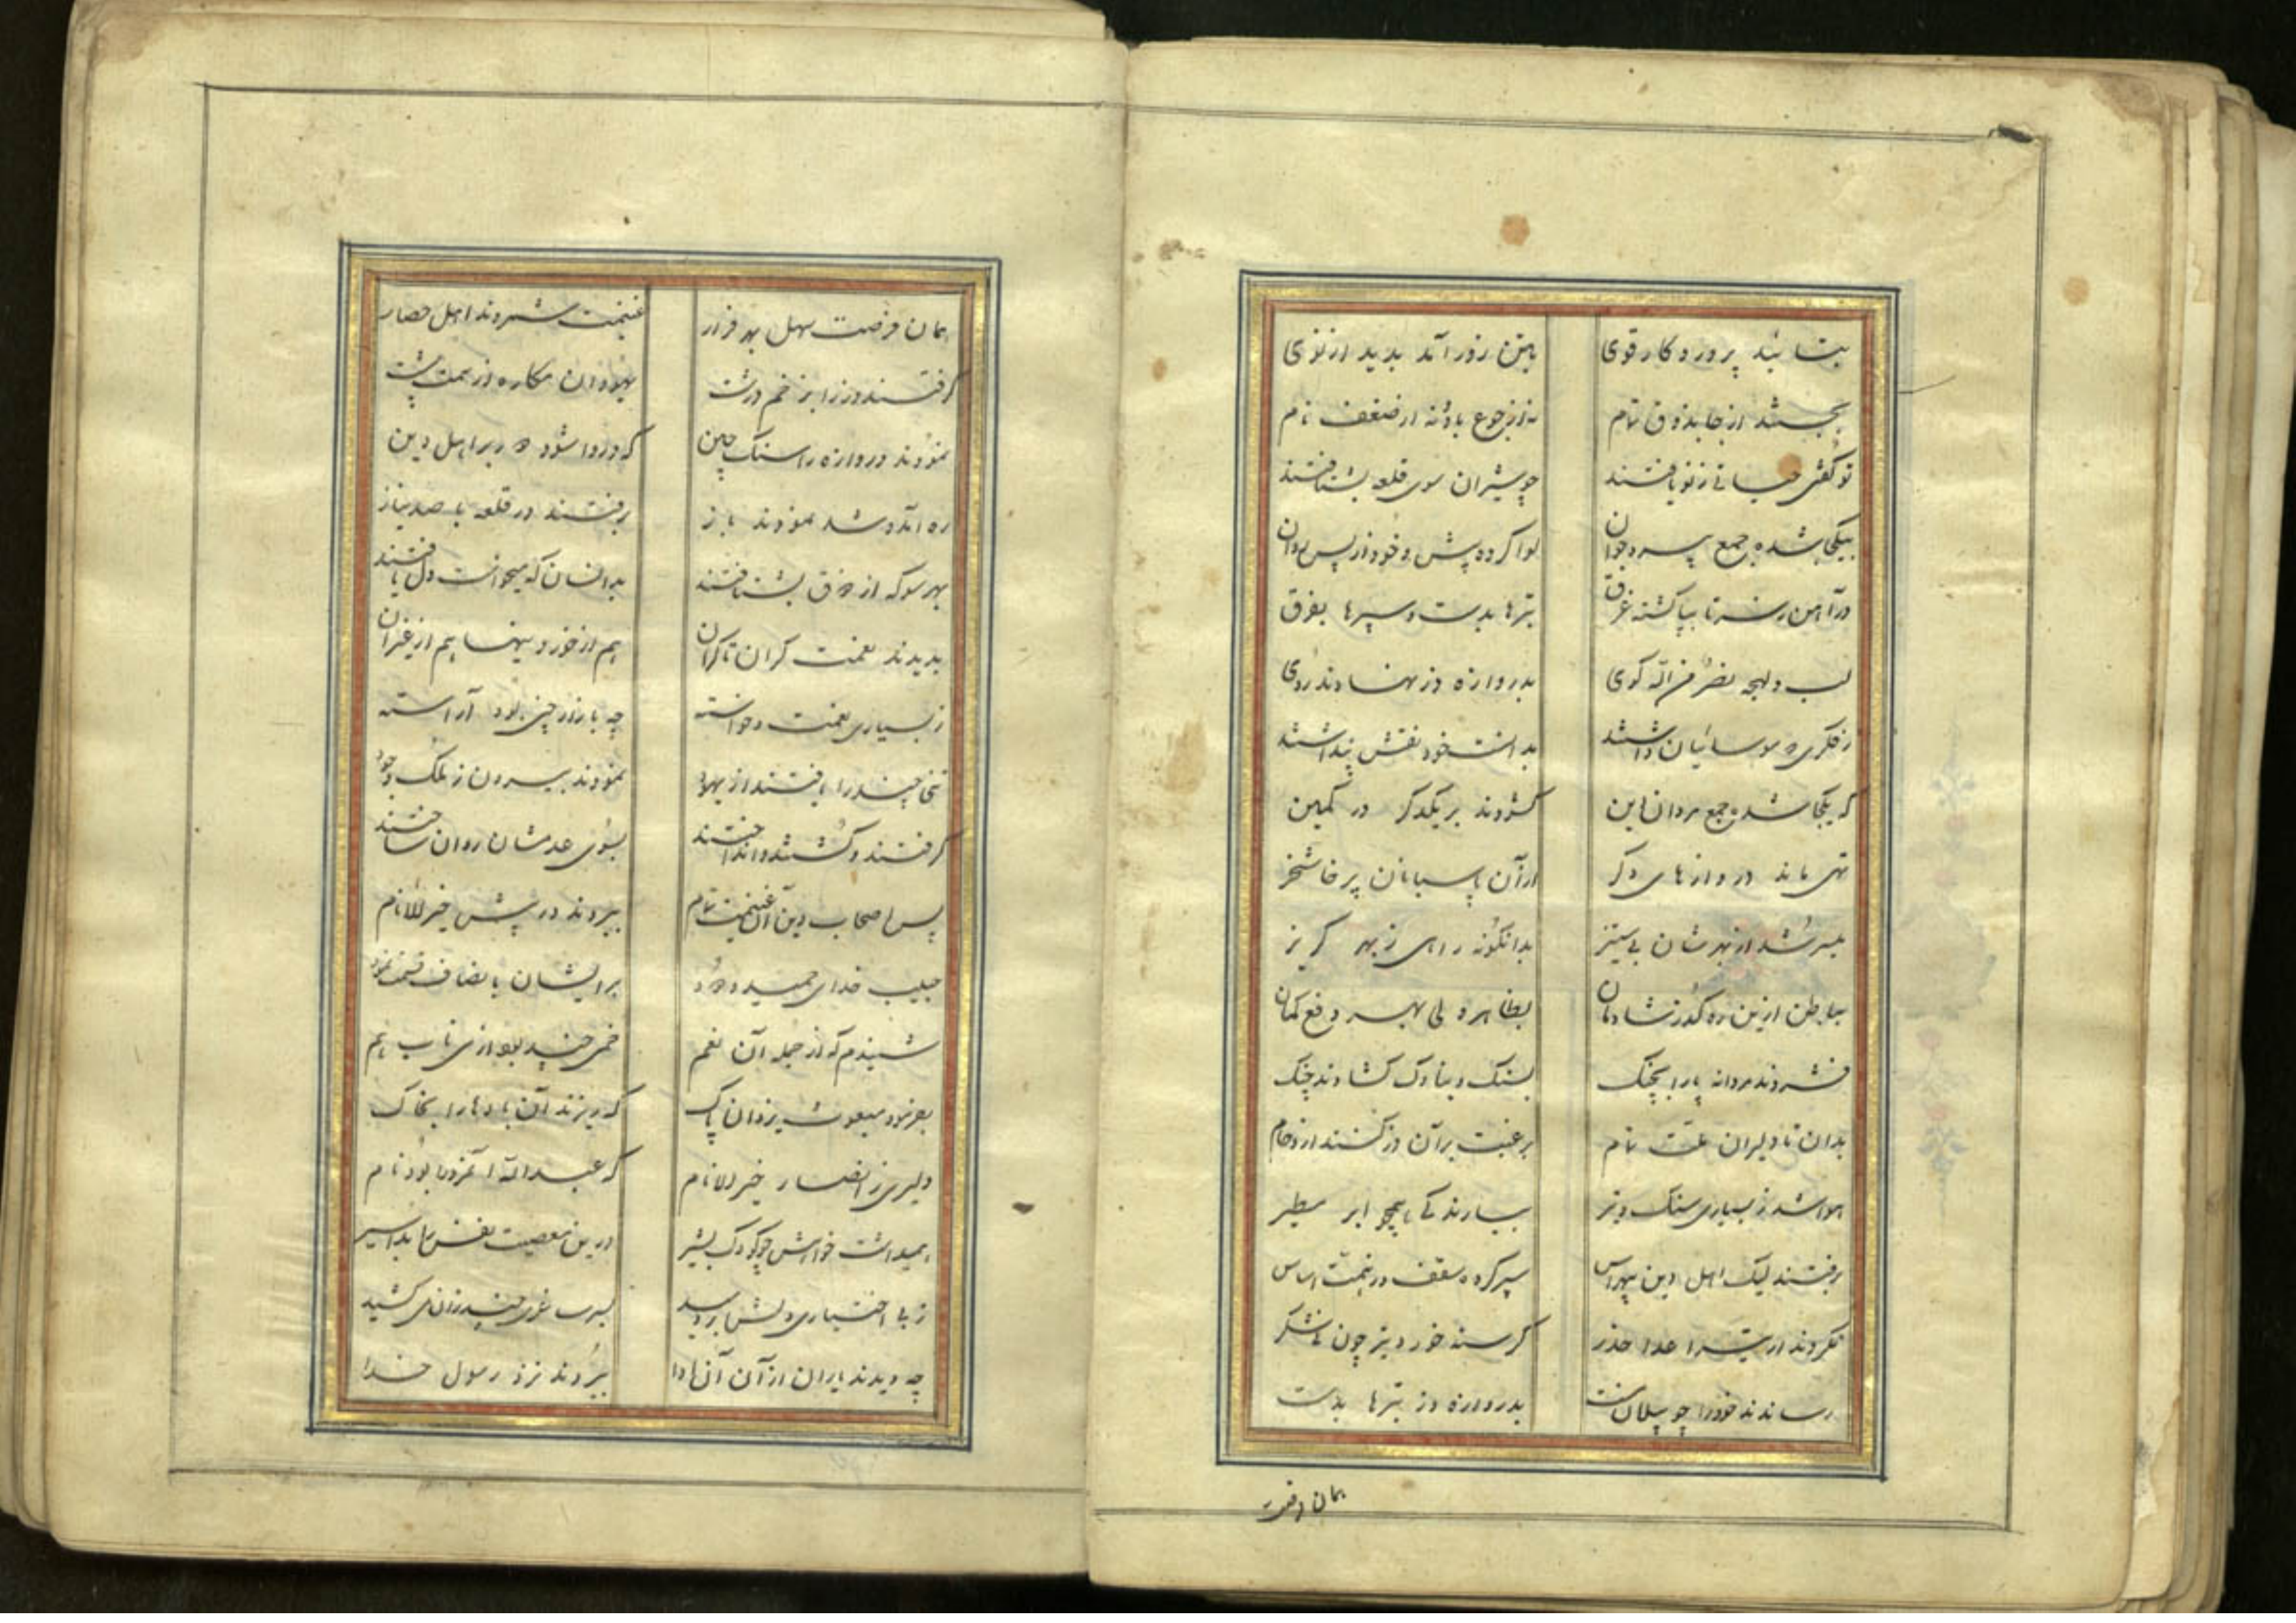 بتائید پروردکار قوی بتن زور آمد پدید از نوی
بجستند از جا بذوق تمام نه از جوع یاد و نه از ضعف نام
تو کفتی حیاتی ز نو یافتند چو شیران سوی قلعه بشتافتند
بیکجا شده جمع پیر و جوان لوا کرده پیش و خود از پس روان
در آهن ز سر تا بپا کشته غرق تبرها بدست و سپرها بفرق
لب و لهجه نصر من الله کوی بدروازه دز نهادند روی
ز فکری که موسائیان داشتند بدانست خود نقش پنداشتند
که یکجا شده جمع مردان این کشودند بر یکدکر در کمین
تهی ماند دروازهای دکر از آن پاسبانان پرخاشخر
میسر شد از بهرشان بی ستیز بدانکونه راهی ز بهر کریز
بباطن ازین ره کذر شادمان بظاهر ولی بهر دفع کمان
فشردند مردانه پا را بجنک بسنک و بناوک کشادند چنک
بدان تا دلیران ملت تمام برغبت بر آن در کنند ازدحام
هوا شد ز بسیاری سنک و تیر ببارندکی همچو ابر مطیر
برفتند لیک اهل دین بیهراس سپر کرده سقف و ز همت اساس
نکردند از تیر اعدا حذر کرسنه خورد تیر چون نیشکر
رساندند خود را چو پیلان مست بدروازه دز تبرها بدست
همان فرصت
همان فرصت سهل بهر فرار غنیمت شمردند اهل حصار
کرفتند دز را ز خم درشت یهودان مکاره از سمت پشت
نمودند دروازه را سنک چین که در وا شود دیر بر اهل دین
ره آمد و شد نمودند باز برفتند در قلعه با صد نیاز
بهر سو که از ذوق بشتافتند بدانسان که میخواست دل یافتند
بدیدند نعمت کران تا کران هم از خورد نیها هم از غیر آن
ز بسیاری نعمت و خواسته چه بازار چین بود آراسته
تنی چند را یافتند از یهود نمودند بیرون ز ملک وجود
کرفتند و کشتند و انداختند بسوی عدمشان روان ساختند
پس اصحاب دین آن غنیمت تمام ببردند در پیش خیر الانام
حبیب خدای حمید ودود بر ایشان بانصاف قسمت نمود
شنیدم که از جمله آن نعم خمی چند بود از می ناب هم
بفرمود مبعوث یزدان پاک که ریزند آن بادها را بخاک
دلیری ز انصار خیر الانام که عبدالله آنمرد را بود نام
همیداشت خواهش چو کودک بشیر درین معصیت نفس ما بد اسیر
ز بی اختیاری دلش بر دمید لبی غری چند زان می کشید
چه دیدند یاران از آن آن ادا ببردند نزد رسول خدا